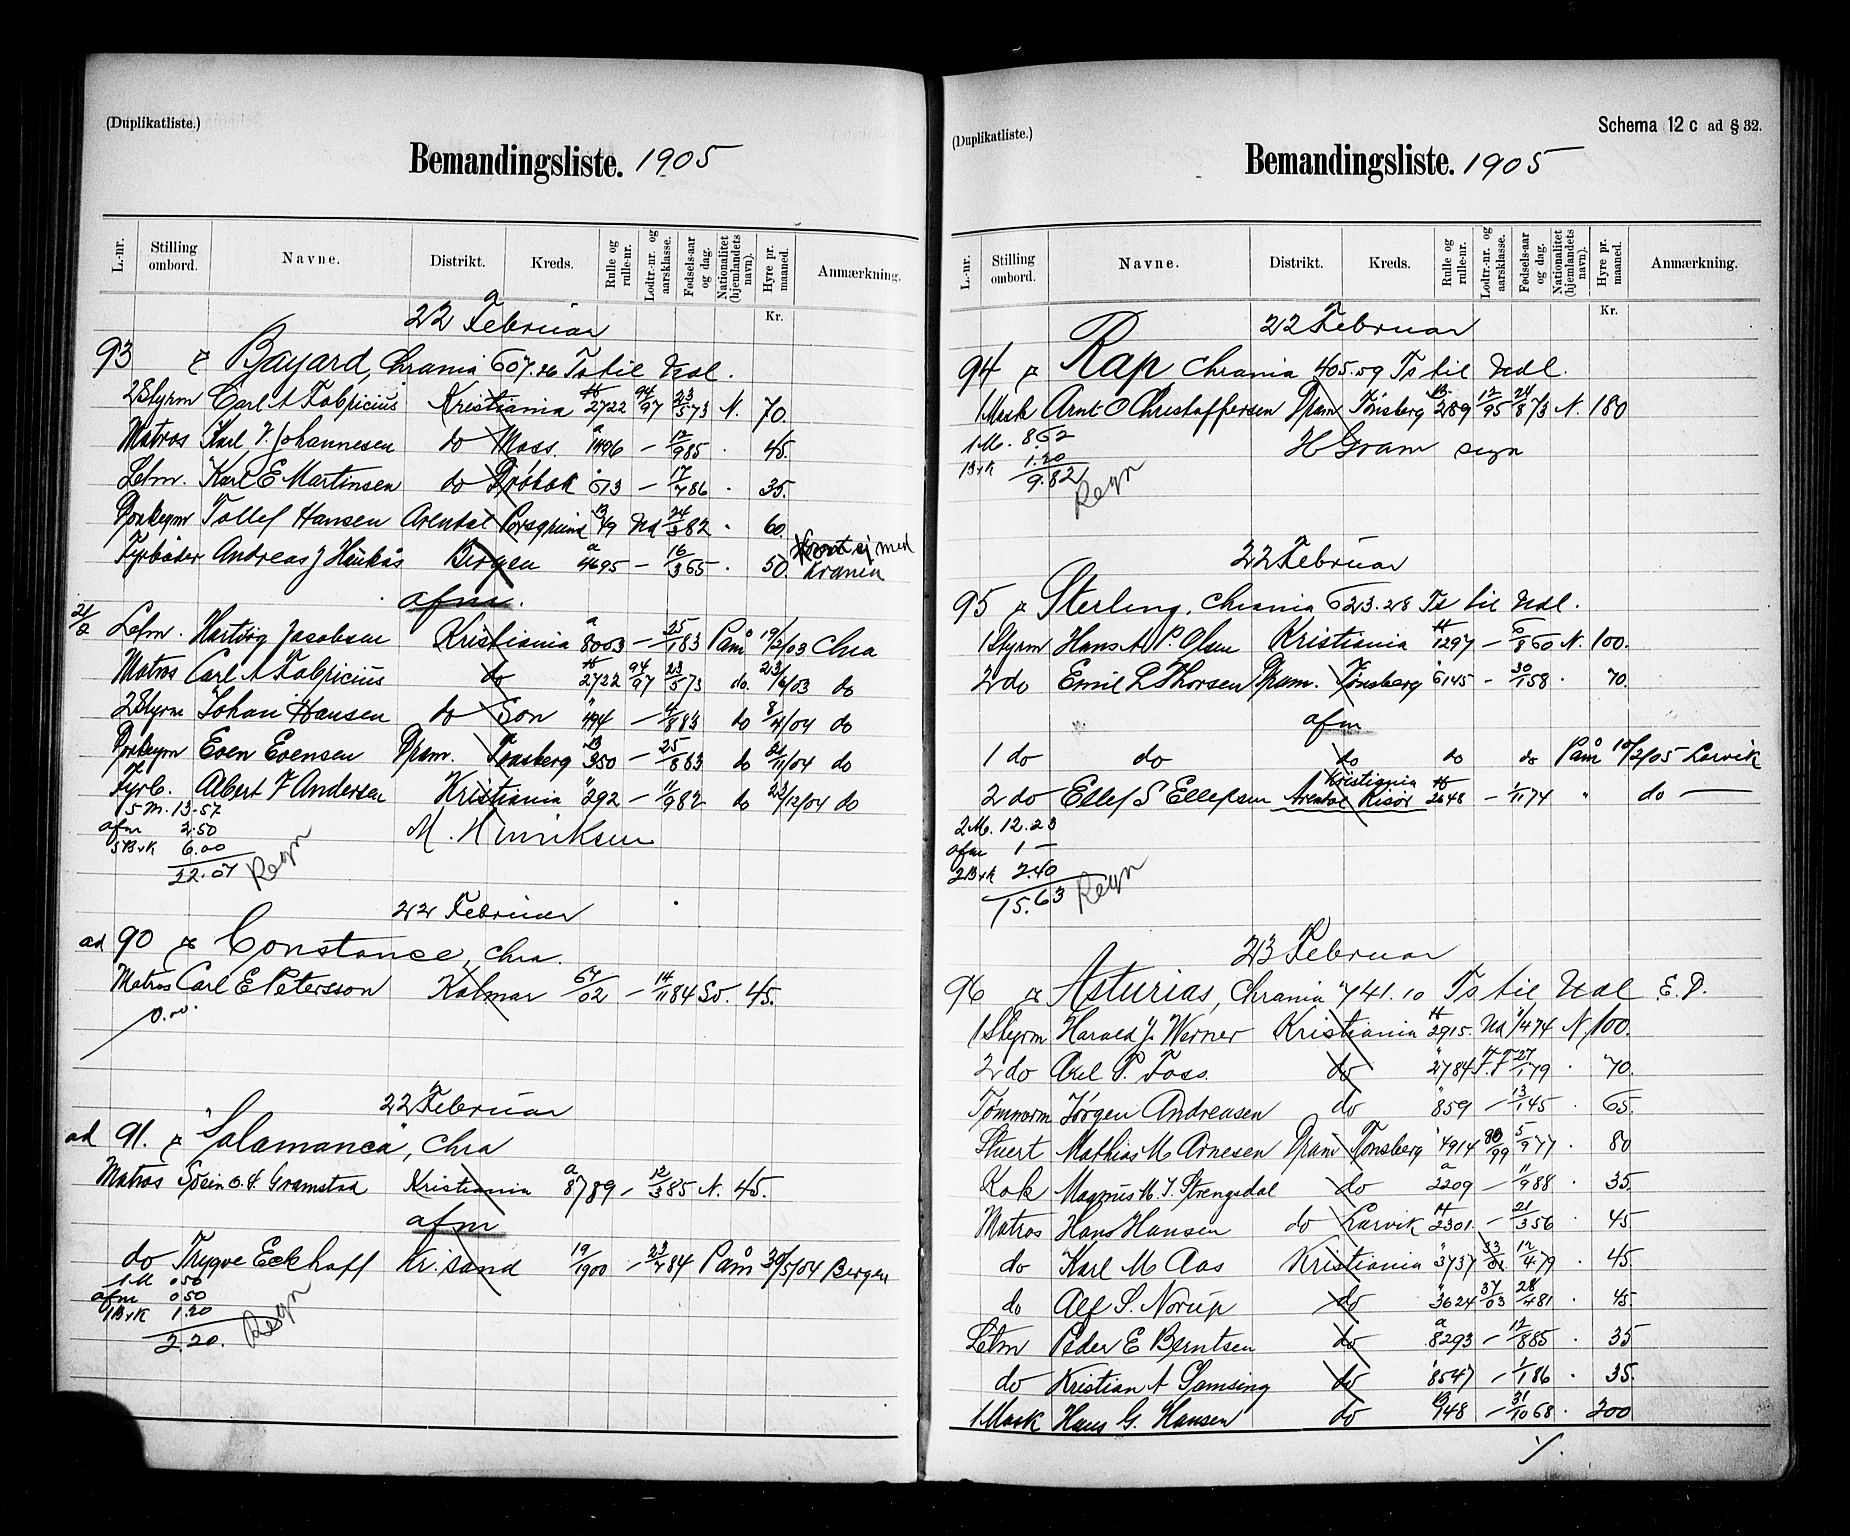 (Duplikatliste.)
Bemandingsliste. 1905
L.-nr. Stilling ombord. Navne. Distrikt. Kreds. Rulle og rulle-nr. Lodtr.-nr. og aarsklasse. Fødsels-aar og dag. Nationalitet (hjemlandets navn). Hyre pr. maaned. Anmærkning.
Kr.
22 Februar
93 Bayard, Chrania 607.26 Ts til Udl.
2 Styrm Carl A Fabricius Kristiania 2722 94/97 23/5 73 N. 70.
Matros Karl J. Johannesen do Moss 1496 — 12/9 85 . 45.
Letm. Karl E Martinsen do Drøbak 613 — 17/7 86 . 35.
Donkeym Tollef Hansen Arendal Porsgrund 49 Ud 24/3 82 . 60.
Fyrbøder Andreas J Haukås Bergen a 4695 — 16/3 65 . 50. ej med Kranen
afm.
21/2 Letm. Hartvig Jacobsen Kristiania a 8003 — 25/1 83 Påm 19/2/03 Chra
Matros Carl A Fabricius do 2722 94/97 23/5 73 do. 23/6/03 do
2 Styrm Johan Hansen do Son " 494 — 4/8 83 do 8/4/04 do
Donkeym Even Evensen Dram. Tønsberg 350 — 25/8 63 do 21/11/04 do
Fyrb. Albert F Andersen Kristiania " 292 — 11/9 82 do 23/12/04 do
5 M. 13.57
afm 2.50
5 B+K 6.00
22.07 Regn
M. Henriksen
22 Februar
ad 90 Constance, Chra.
Matros Carl E Petersson Kalmar 67/02 — 14/11 84 Sv. 45.
22 Februar
ad 91. "Salamanca", Chra
Matros Svein O. Gramstad Kristiania a 8789 — 12/3 85 N. 45.
afm
do Trygve Eckhoff Kr.sand 19/1900 — 23/7 84 Påm 30/5/04 Bergen
1 M 0.50
afm 0.50
1 B+K 1.20
2.20. Regn
(Duplikatliste.)
Schema 12 c ad § 32.
Bemandingsliste. 1905
L.-nr. Stilling ombord. Navne. Distrikt. Kreds. Rulle og rulle-nr. Lodtr.-nr. og aarsklasse. Fødsels-aar og dag. Nationalitet (hjemlandets navn). Hyre pr. maaned. Anmærkning.
Kr.
22 Februar
94 Rap Chrania 405.59 Ts til Udl.
1 Mask Arnt O Christoffersen Dram Tønsberg 289 12/95 24/8 73 N. 180
1 M. 8.62
H Gram sign
1 B+K 1.20
9.82 Regn
22 Februar
95 Sterling, Chrania 623.28 Ts til Udl.
1 Styrm Hans A P. Olsen Kristiania 1297 — 5/8 60 N. 100.
2 do Emil L Thorsen Dram. Tønsberg 6145 — 30/1 58 . 70.
afm
1 do do do do do Påm 10/2/05 Larvik
2 do Ellef S Ellefsen Arendal Risør Kristiania 2648 — 1/11 74 " do —
2 M. 12.23
afm 1 —
2 B+K 2.40
15.63 Regn
23 Februar
96 Asturias, Chrania 741.10 Ts til Udl E.D.
1 Styrm Harald J. Werner Kristiania 2915 Ud 1/4 74 N. 100.
2 do Axel P. Foss. do " 2784 F.F 27/1 79 . 70.
Tømmerm Jørgen Andreasen do " 859 — 13/1 45 . 65.
Stuert Mathias M Arnesen Dram Tønsberg 4914 80/99 5/9 77 . 80
Kok Magnus M J. Strengsdal do a 2209 — 11/9 88 . 35.
Matros Hans Hansen do Larvik 2301 — 21/3 56 . 45
do Karl M Aas Kristiania " 3737 12/4 79 . 45.
do Alf S. Norup do " 3624 37/03 28/4 81 . 45.
Letm Peder E Berntsen do a 8293 — 12/8 85 . 35
do Kristian A Samsing do " 8547 — 1/1 86 . 35.
1 Mask Hans G. Hansen do 948 — 31/10 68 . 200